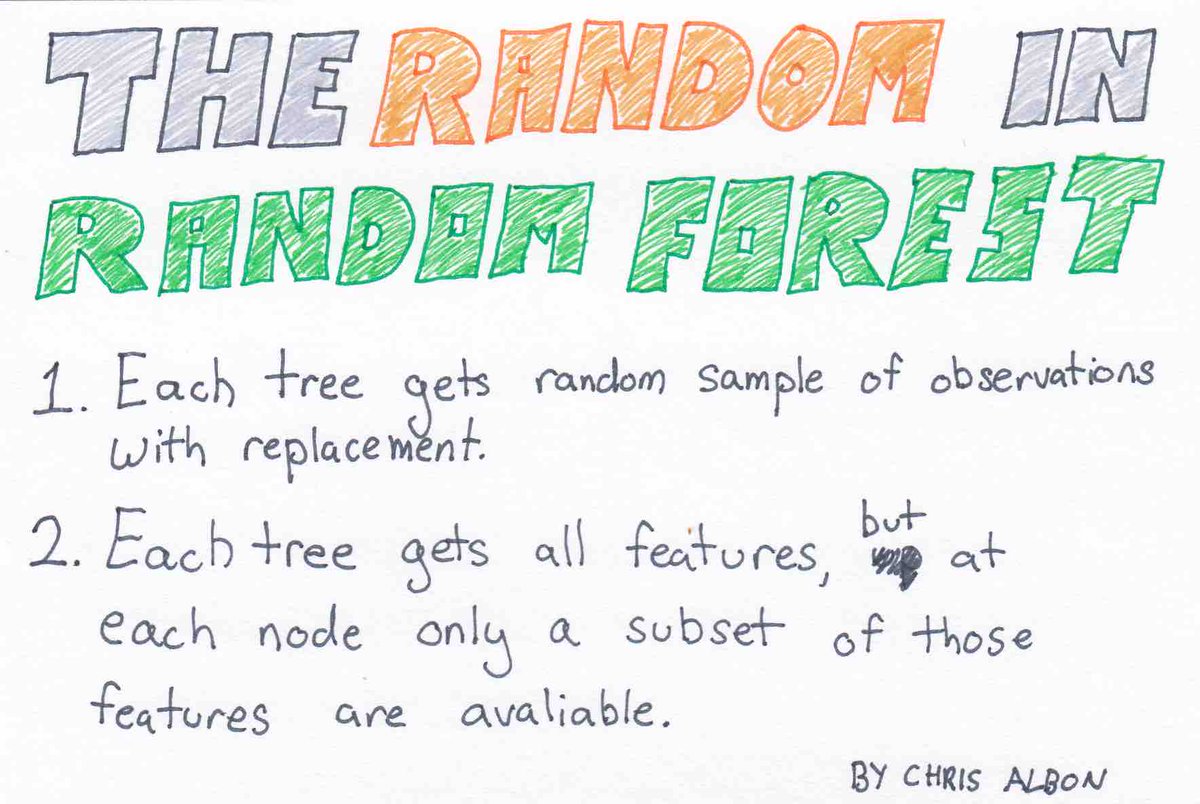 THE RANDOM IN
RANDOM FOREST
1. Each tree gets random sample of observations
with replacement.
2. Each tree gets all features, but at
each node only a subset of those
features are avaliable.
BY CHRIS ALBON